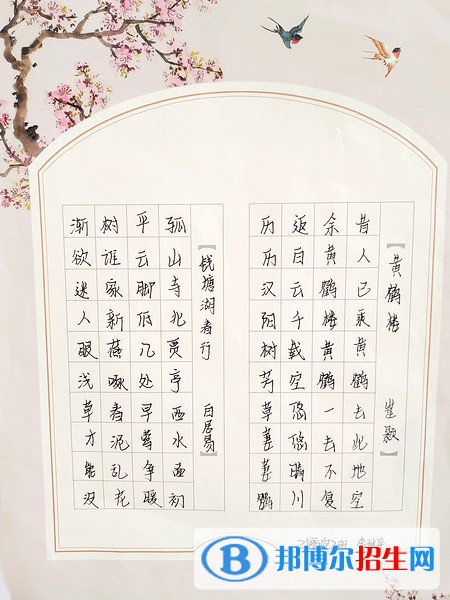 【黄鹤楼 崔颢】
昔人已乘黄鹤去此地空
余黄鹤楼黄鹤一去不复
返白云千载空悠悠晴川
历历汉阳树芳草萋萋鹦
【钱塘湖春行 白居易】
孤山寺北贾亭西水面初
平云脚低几处早莺争暖
树谁家新燕啄春泥乱花
渐欲迷人眼浅草才能没
邦博尔招生网